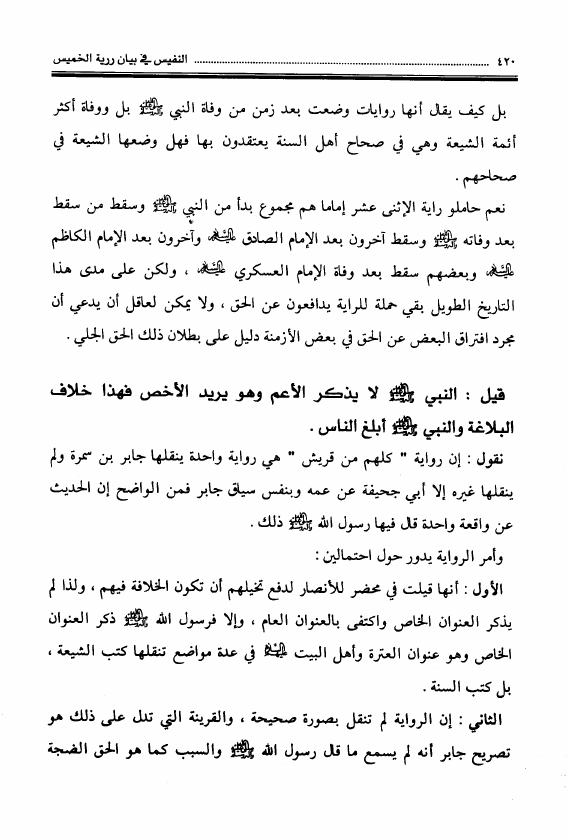 ٤٢٠ ........ النفيس في بيان رزية الخميس
بل كيف يقال أنها روايات وضعت بعد زمن من وفاة النبي ﷺ بل ووفاة أكثر
أئمة الشيعة وهي في صحاح أهل السنة يعتقدون بها فهل وضعها الشيعة في
صحاحهم .
نعم حاملو راية الإثنى عشر إماما هم مجموع بدأ من النبي ﷺ وسقط من سقط
بعد وفاته ﷺ وسقط آخرون بعد الإمام الصادق وآخرون بعد الإمام الكاظم
وبعضهم سقط بعد وفاة الإمام العسكري ، ولكن على مدى هذا
التاريخ الطويل بقي حملة للراية يدافعون عن الحق ، ولا يمكن لعاقل أن يدعي أن
مجرد افتراق البعض عن الحق في بعض الأزمنة دليل على بطلان ذلك الحق الجلي .
قيل : النبي ﷺ لا يذكر الأعم وهو يريد الأخص فهذا خلاف
البلاغة والنبي ﷺ أبلغ الناس .
نقول : إن رواية " كلهم من قريش " هي رواية واحدة ينقلها جابر بن سمرة ولم
ينقلها غيره إلا أبي جحيفة عن عمه وبنفس سياق جابر فمن الواضح إن الحديث
عن واقعة واحدة قال فيها رسول الله ﷺ ذلك .
وأمر الرواية يدور حول احتمالين :
الأول : أنها قيلت في محضر للأنصار لدفع تخيلهم أن تكون الخلافة فيهم ، ولذا لم
يذكر العنوان الخاص واكتفى بالعنوان العام ، وإلا فرسول الله ﷺ ذكر العنوان
الخاص وهو عنوان العترة وأهل البيت في عدة مواضع تنقلها كتب الشيعة ،
بل كتب السنة .
الثاني : إن الرواية لم تنقل بصورة صحيحة ، والقرينة التي تدل على ذلك هو
تصريح جابر أنه لم يسمع ما قال رسول الله ﷺ والسبب كما هو الحق الضجة